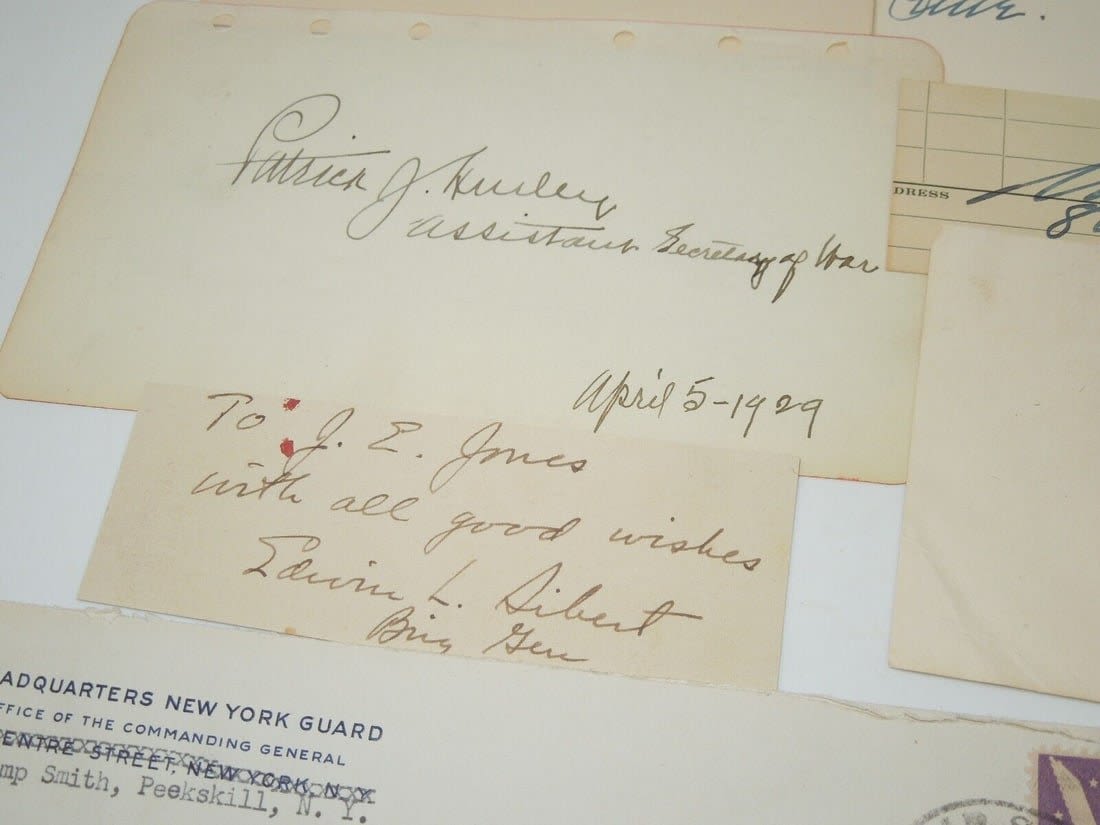 Patrick J. Hurley
Assistant Secretary of War
April 5-1929
DRESS
To J. E. Jones
with all good wishes
Edwin L. Sibert
Brig Gen
ADQUARTERS NEW YORK GUARD
FFICE OF THE COMMANDING GENERAL
ENTRE STREET, NEW YORK, N.Y.
mp Smith, Peekskill, N. Y.